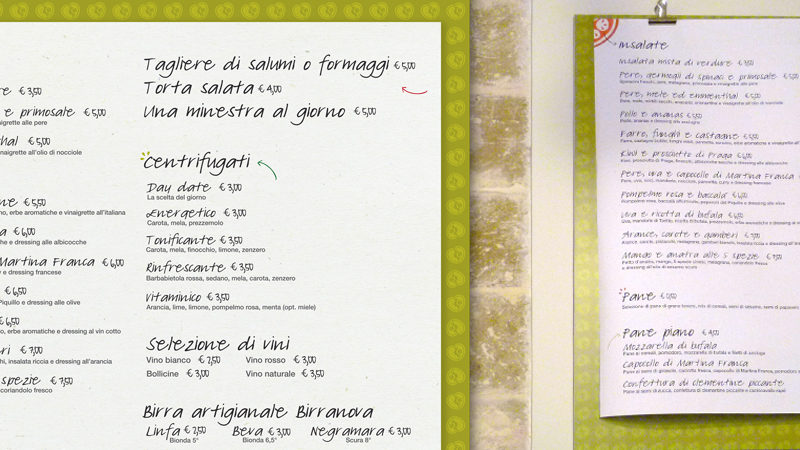 Tagliere di salumi o formaggi € 5,00
Torta salata € 4,00
Una minestra al giorno € 5,00
centrifugati
Day date € 3,00
La scelta del giorno
Energetico € 3,00
Carota, mela, prezzemolo
Tonificante € 3,50
Carota, mela, finocchio, limone, zenzero
Rinfrescante € 3,50
Barbabietola rossa, sedano, mela, carota, zenzero
Vitaminico € 3,50
Arancia, lime, limone, pompelmo rosa, menta (opt. miele)
Selezione di vini
Vino bianco € 2,50 Vino rosso € 3,00
Bollicine € 3,00 Vino naturale € 3,50
Birra artigianale Birranova
Linfa € 2,50 Beva € 3,00 Negramara € 3,00
Bionda 5° Bionda 6,5° Scura 8°
re € 3,50
e primosale € 5,00
naigrette alle pere
hal € 5,00
naigrette all'olio di nocciole
ne € 5,50
no, erbe aromatiche e vinaigrette all'italiana
a € 6,00
che e dressing alle albicocche
Martina Franca € 6,00
e e dressing francese
€ 6,50
Piquillo e dressing alle olive
€ 6,50
no, erbe aromatiche e dressing al vin cotto
ri € 7,00
hi, insalata riccia e dressing all'arancia
spezie € 7,50
coriandolo fresco
insalate
Insalata mista di verdure
Pere, germogli di spinaci e primosale
Pere, mele ed emmenthal
Pollo e ananas
Farro, funghi e castagne
Kiwi e prosciutto di Praga
Pere, uva e capocollo di Martina Franca
Pompelmo rosa e baccalà
Uva e ricotta di bufala
Arance, carote e gamberi
Mango e anatra alle 5 spezie
Pane
Pane piano
Mozzarella di bufala
Capocollo di Martina Franca
Confettura di clementine piccante